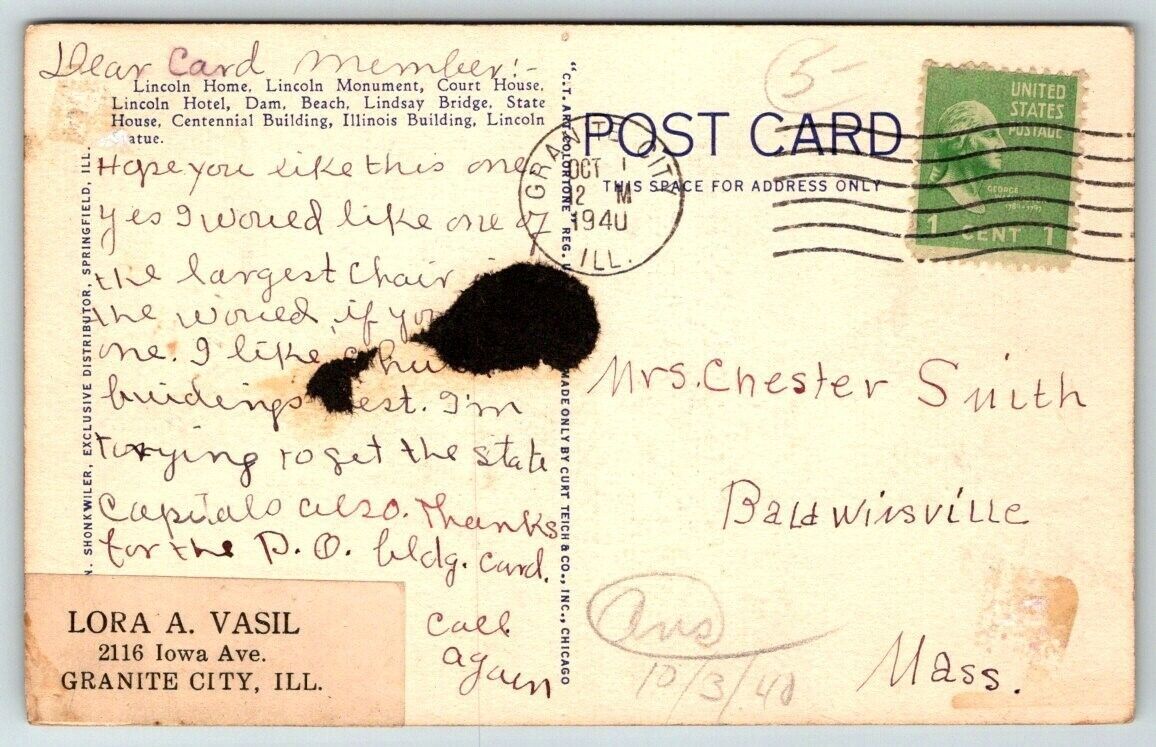 Dear Card Member:-
Lincoln Home, Lincoln Monument, Court House,
Lincoln Hotel, Dam, Beach, Lindsay Bridge, State
House, Centennial Building, Illinois Building, Lincoln
tatue.
Hope you like this one
yes I would like one of
the largest chair
the world, if
one. I like
buildings est. I'm
trying to get the state
Capitals also. Thanks
for the P.O. bldg. card.
Call
again
LORA A. VASIL
2116 Iowa Ave.
GRANITE CITY, ILL.
N. SHONKWILER, EXCLUSIVE DISTRIBUTOR, SPRINGFIELD, ILL.
"C.T. ART-COLORTONE" REG. U
MADE ONLY BY CURT TEICH & CO., INC., CHICAGO
POST CARD
THIS SPACE FOR ADDRESS ONLY
GRANITE CITY
OCT 1
12 M
1940
ILL.
5-
UNITED
STATES
POSTAGE
GEORGE
1 CENT 1
Mrs. Chester Smith
Baldwinsville
Mass.
Ans
10/3/40